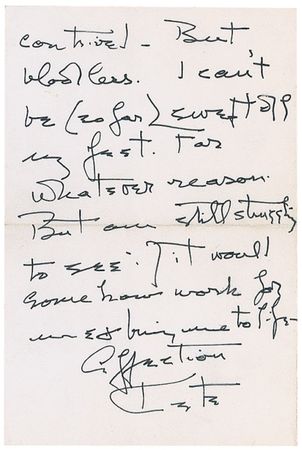 contrived - But
bloodless. I can't
be (so far) swept off
my feet. For
whatever reason.
But am still struggling
to see if it would
somehow work for
me & bring me to life -
Affection
Kate